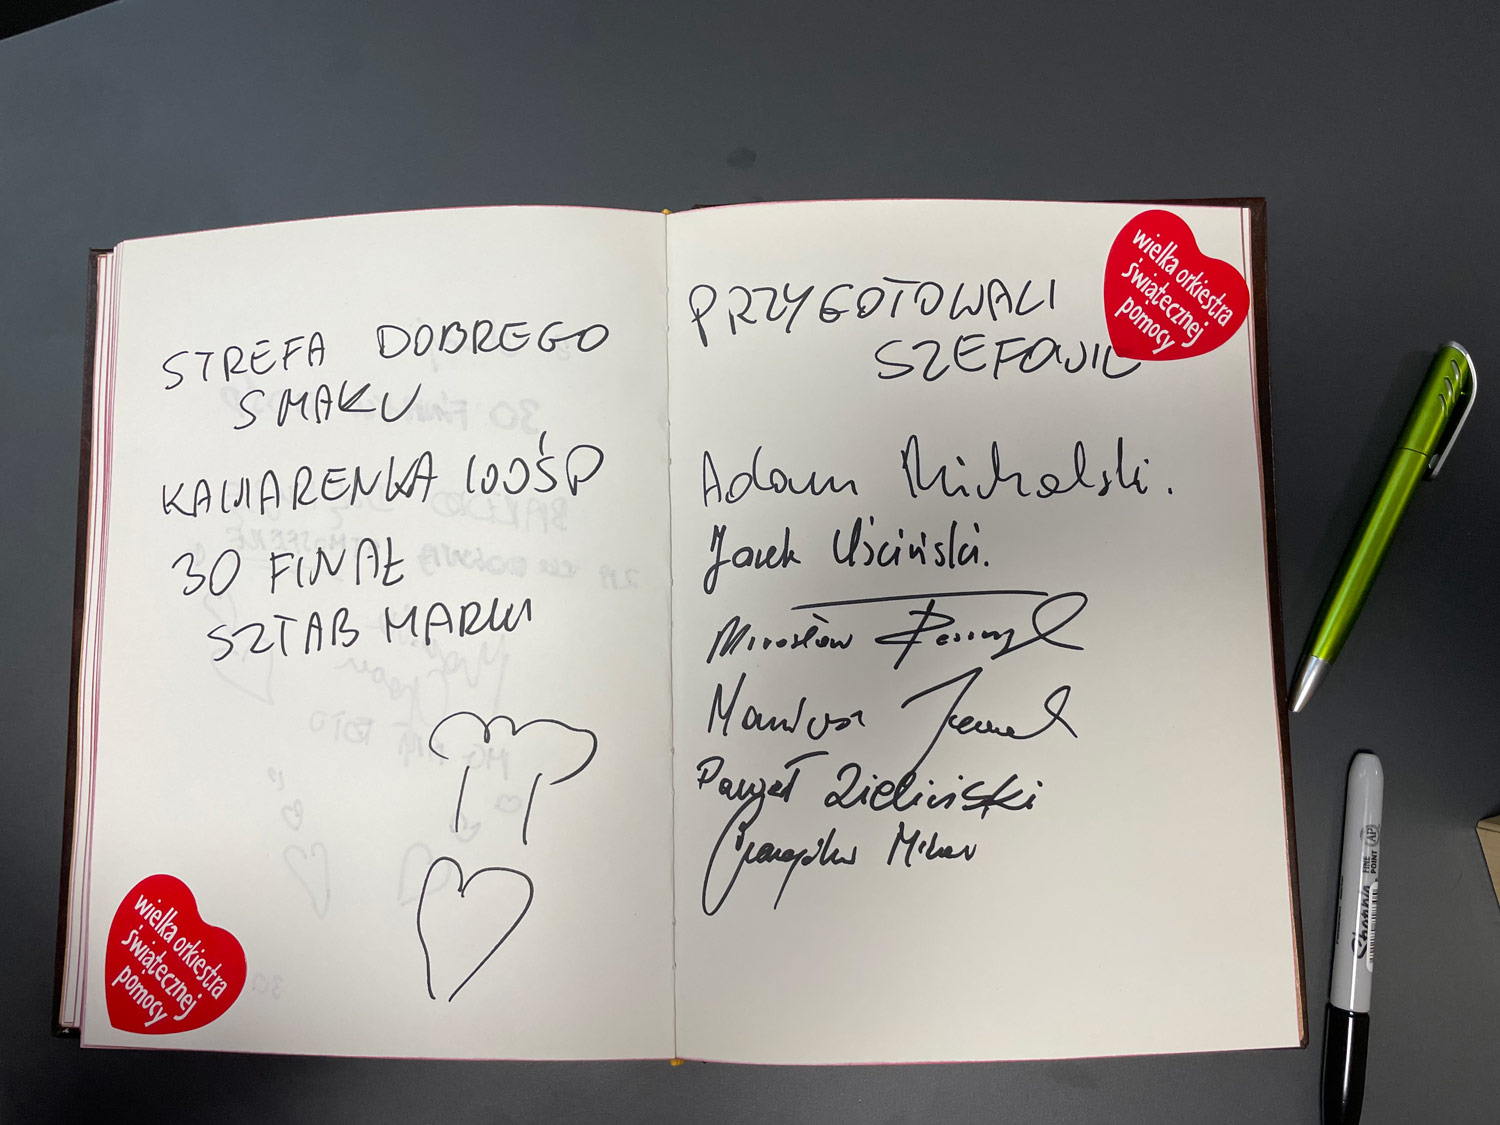 STREFA DOBREGO
SMAKU
KAWIARENKA WOŚP
30 FINAŁ
SZTAB MARKI
wielka orkiestra
świątecznej
pomocy
PRZYGOTOWALI
SZEFOWIE
wielka orkiestra
świątecznej
pomocy
Adam Michalski.
Jarek Uściński.
Mirosław
Mariusz
Paweł Zieliński
Sharpie
FINE
POINT
AP